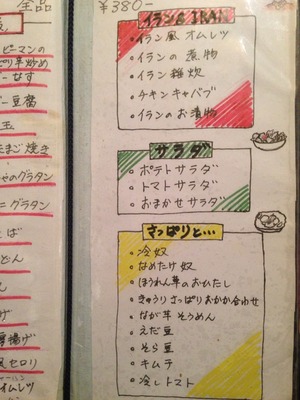 全品
¥380-
ピーマンの
ぴり辛炒め
なす
豆腐
玉
たまご焼き
グラタン
グラタン
ば
どん
げ
厚揚げ
セロリ
オムレツ
イラン IRAN
・イラン風オムレツ
・イランの煮物
・イラン雑炊
・チキンキャバブ
・イランのお漬物
サラダ
・ポテトサラダ
・トマトサラダ
・おまかせサラダ
さっぱりと…
・冷奴
・なめたけ奴
・ほうれん草のおひたし
・きゅうりさっぱりおかか合わせ
・なが芋そうめん
・えだ豆
・そら豆
・キムチ
・冷しトマト